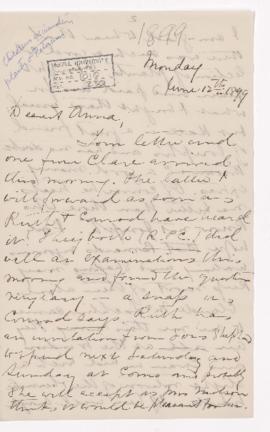 1899
Monday
June 12th 1899
Dearest Anna,
Your letter and
one from Clare arrived
this morning. The latter I
will forward as soon as
Ruth & Conrad have heard
it. did
well in examinations this
morning and found the questions
very easy — a snap as
Conrad says. Ruth has
an invitation from Lois
to spend next Saturday and
Sunday at Como and
she will accept as Mrs
thinks it would be pleasant for her.